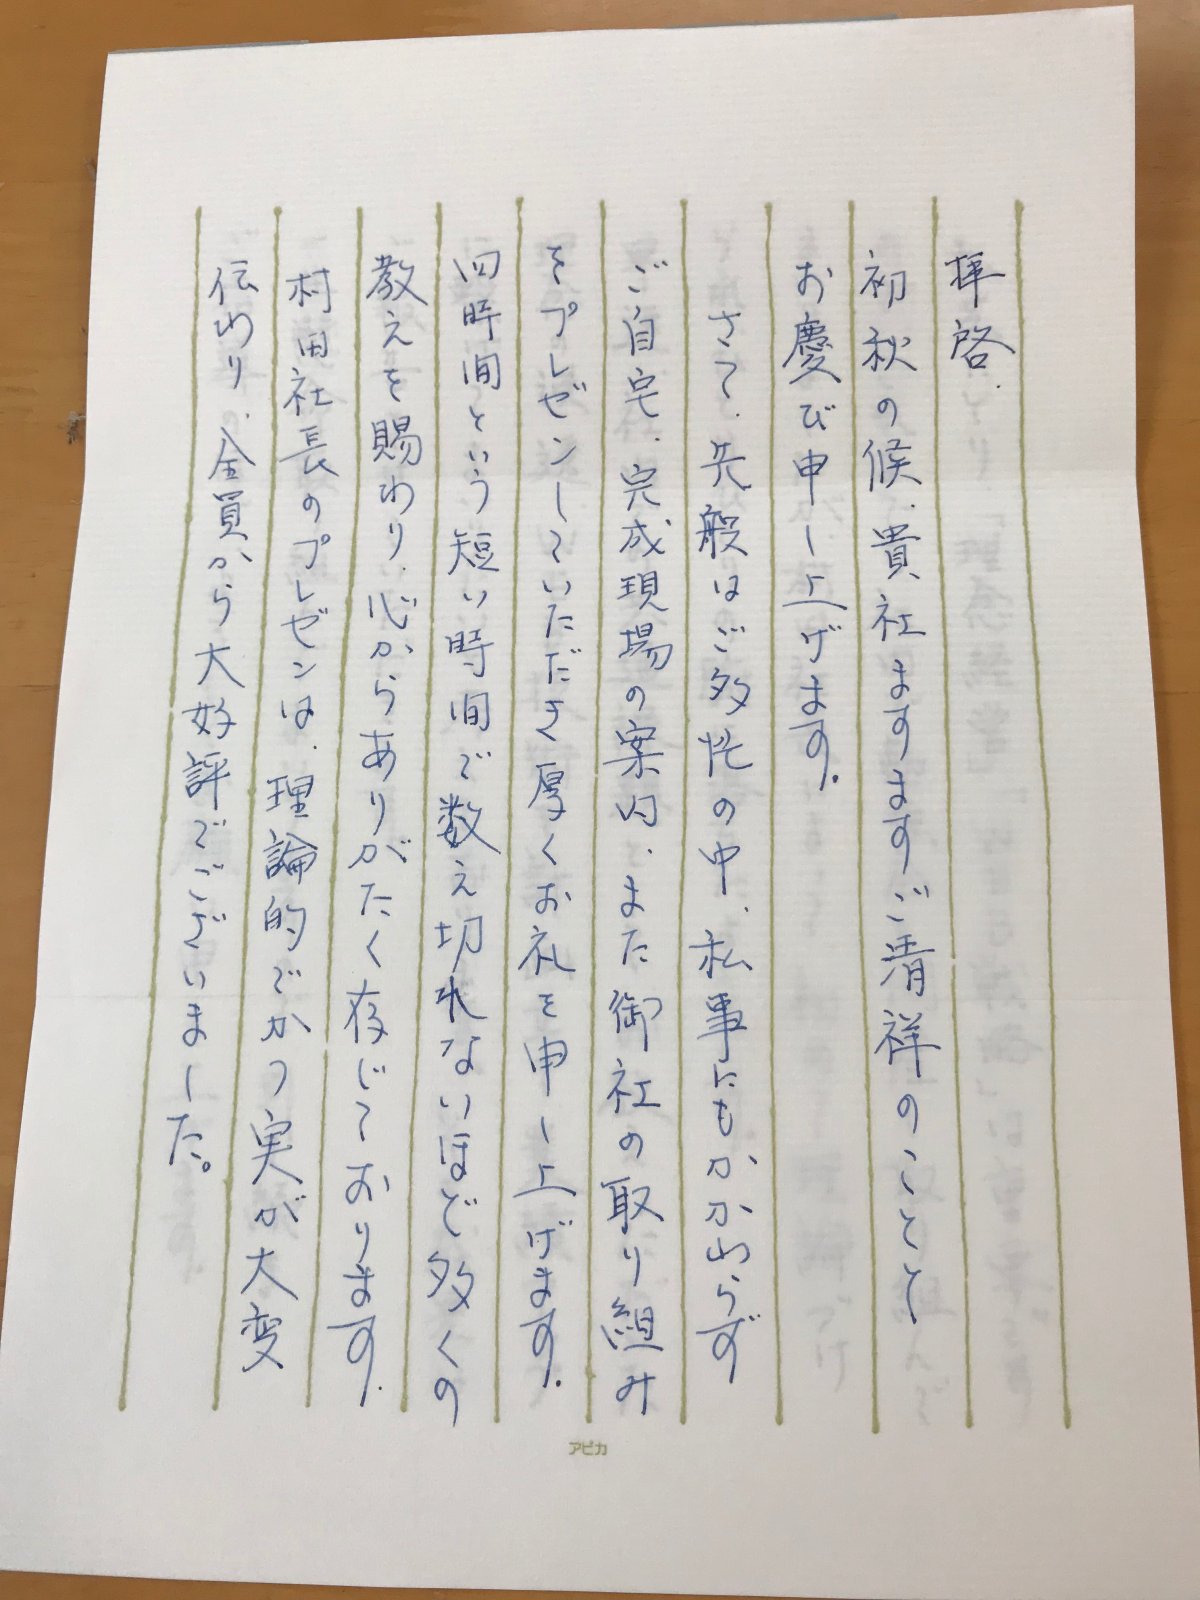 拝啓、
初秋の候、貴社ますますご清祥のことと
お慶び申し上げます。
さて、先般はご多忙の中、私事にもかかわらず
ご自宅、完成現場の案内、また御社の取り組み
をプレゼンしていただき厚くお礼を申し上げます。
四時間という短い時間で数え切れないほど多くの
教えを賜わり、心からありがたく存じております。
村田社長のプレゼンは、理論的でかつ実が大変
伝わり、全員から大好評でございました。
アピカ